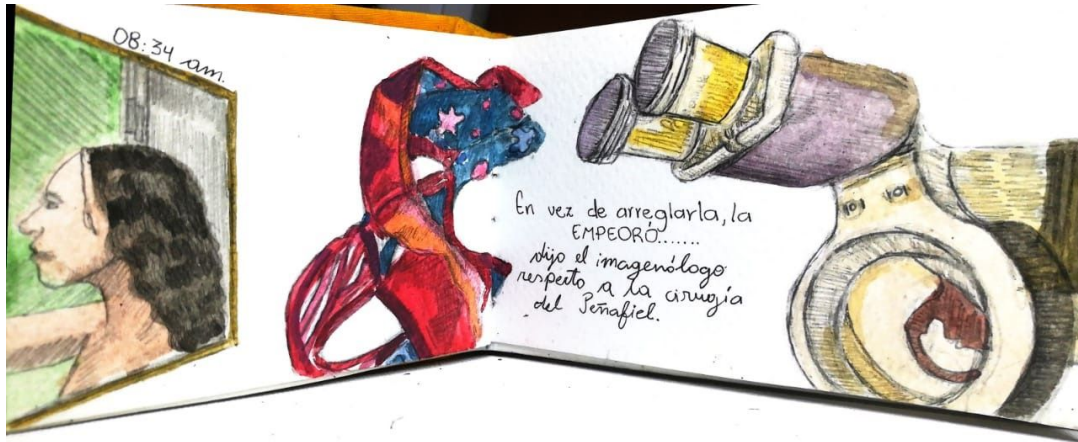 08:34 am.
En vez de arreglarla, la
EMPEORÓ.......
dijo el imagenólogo
respecto a la cirugía
del Peñafiel.